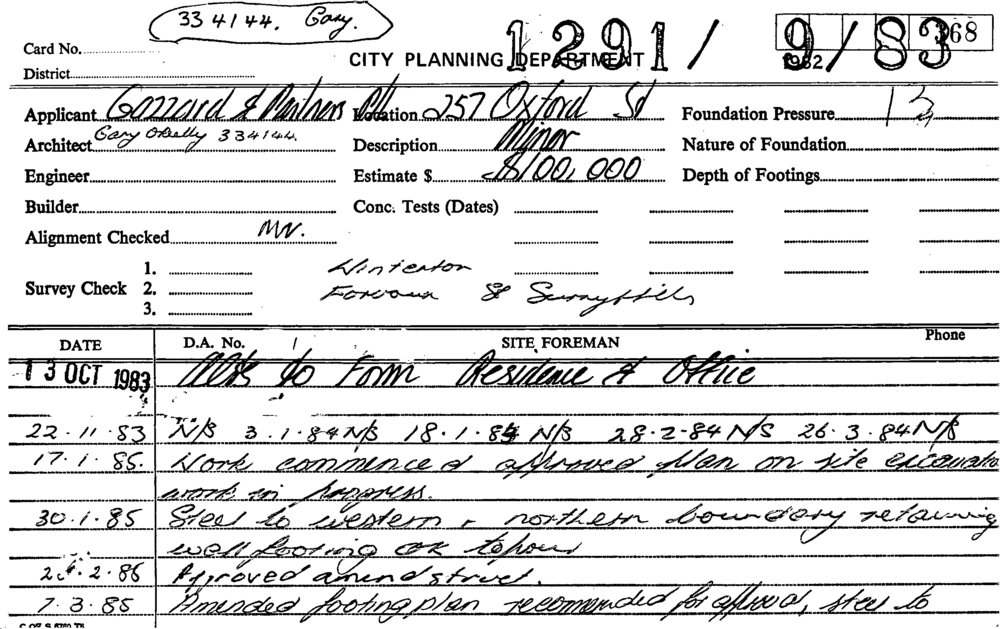 334144. Gary.
1291/9/83
368
Card No.
CITY PLANNING DEPARTMENT
1982
District
Applicant Gazzard & Partners P/L Location 257 Oxford St Foundation Pressure
Architect Gary O'Reilly 334144. Description Minor Nature of Foundation
Engineer Estimate $ $100,000 Depth of Footings
Builder Conc. Tests (Dates)
Alignment Checked
1. Winterton
Survey Check 2. St Surry Hills
3.
DATE D.A. No. SITE FOREMAN Phone
13 OCT 1983 Alts to Form Residence & Office
22.11.83 N/S 3.1.84 N/S 18.1.84 N/S 28.2.84 N/S 26.3.84 N/S
17.1.85. Work commenced approved plan on site excavatn
work in progress.
30.1.85 Steel to western & northern boundary retaining
wall footing OK to pour
.2.85 Approved amend struct.
7.3.85 Amended footing plan recomended for approval, steel to